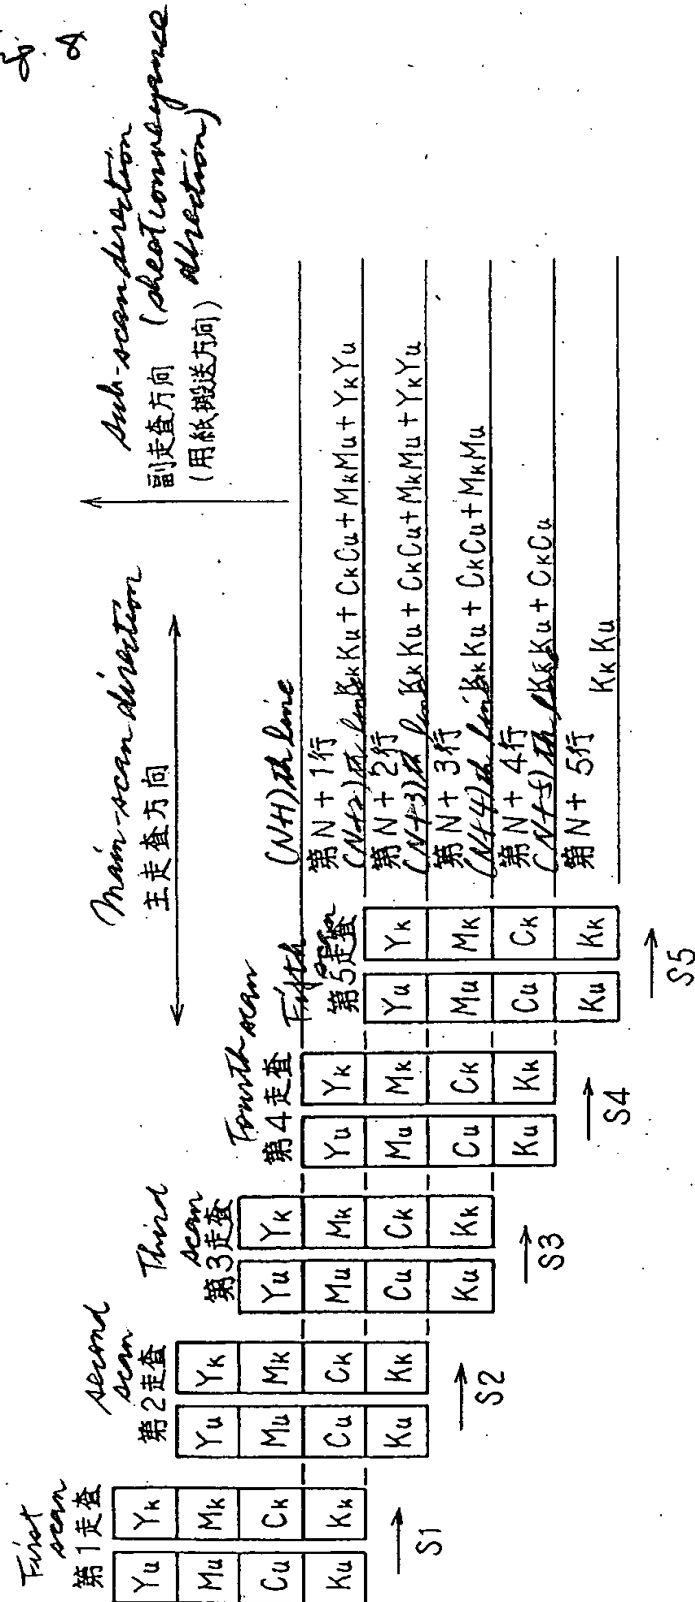 sub-scan direction
(sheet conveyance
direction)
副走査方向
(用紙搬送方向)
Main-scan direction
主走査方向
First
scan
第1走査
Yu Yk
Mu Mk
Cu Ck
Ku Kk
S1
second
scan
第2走査
Yu Yk
Mu Mk
Cu Ck
Ku Kk
S2
Third
scan
第3走査
Yu Yk
Mu Mk
Cu Ck
Ku Kk
S3
Fourth scan
第4走査
Yu Yk
Mu Mk
Cu Ck
Ku Kk
S4
Fifth
scan
第5走査
Yu Yk
Mu Mk
Cu Ck
Ku Kk
S5
(N+1)th line
第N+1行
KkKu+CkCu+MkMu+YkYu
(N+2)th line
第N+2行
KkKu+CkCu+MkMu+YkYu
(N+3)th line
第N+3行
KkKu+CkCu+MkMu
(N+4)th line
第N+4行
KkKu+CkCu
(N+5)th line
第N+5行
KkKu